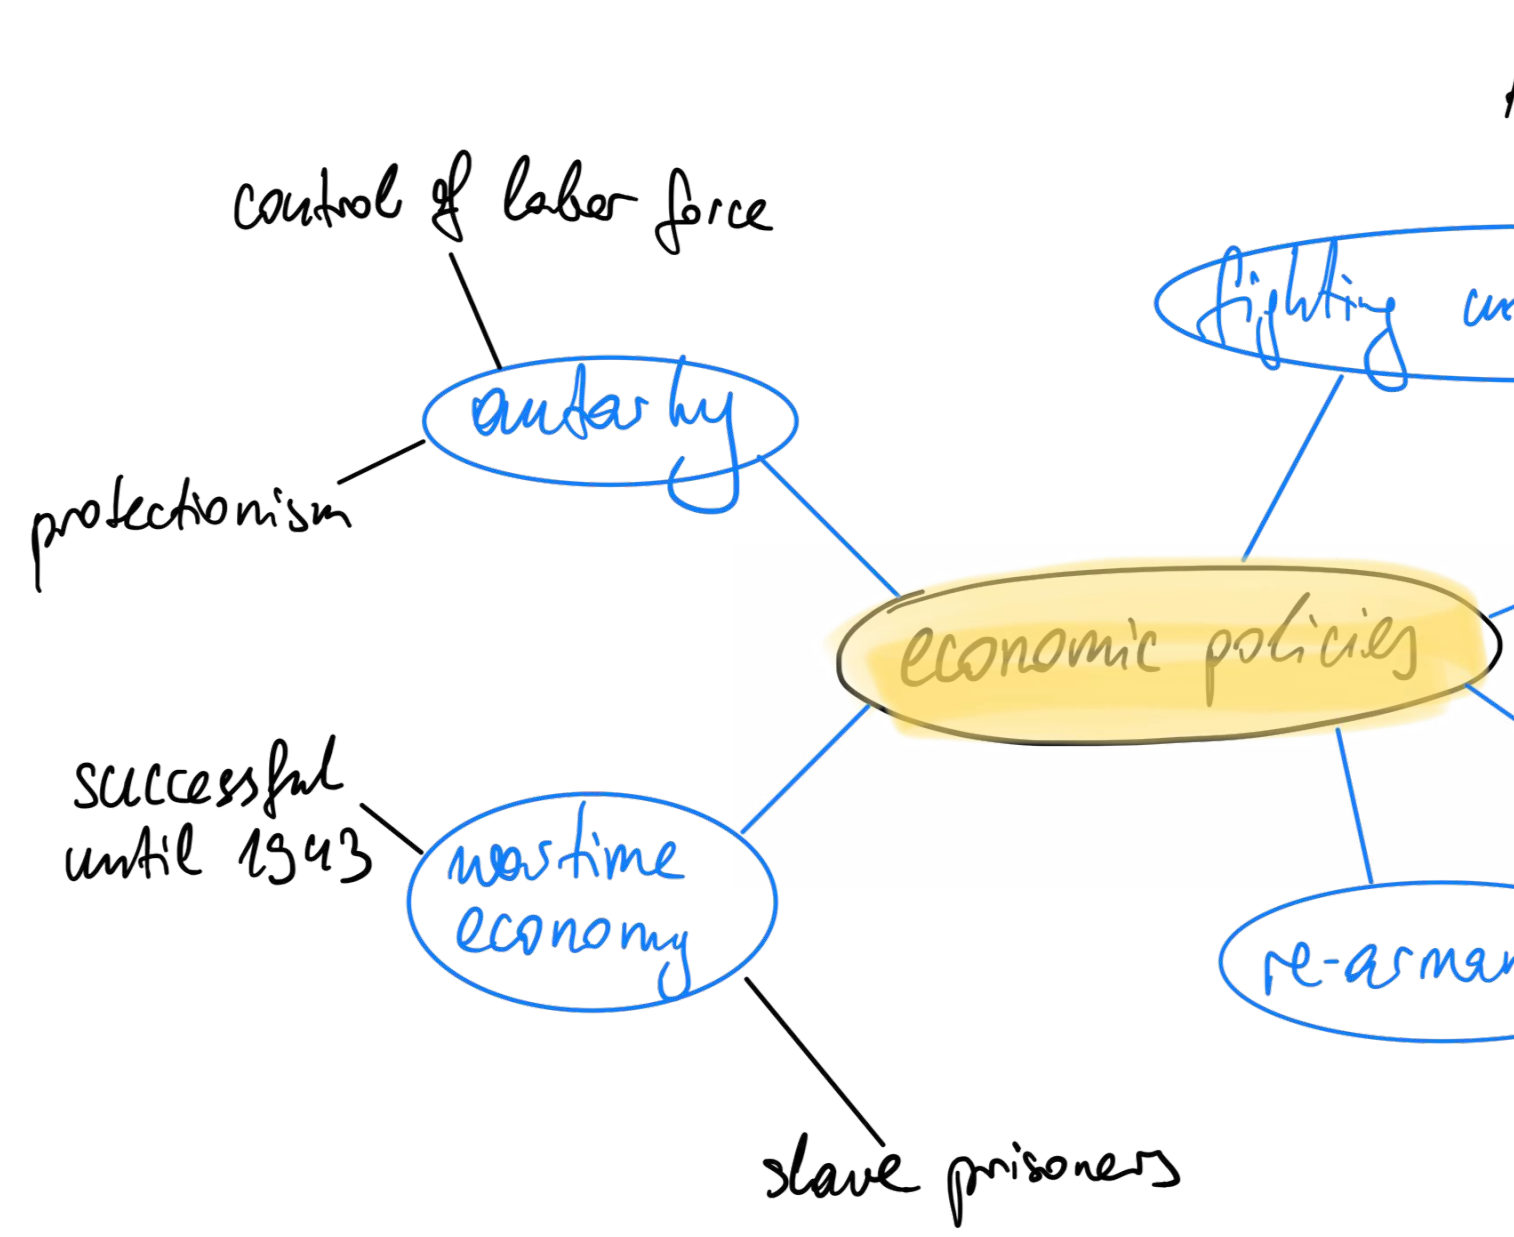 control of labor force
fighting
autarky
protectionism
economic policies
successful
until 1943
wartime
economy
re-arma
slave prisoners